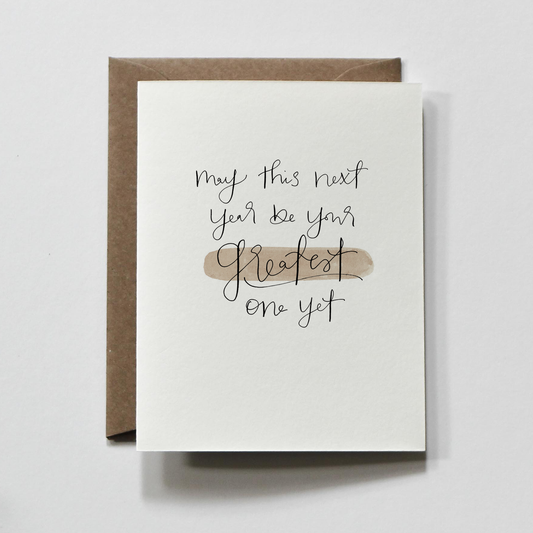 may this next
year be your
greatest
one yet